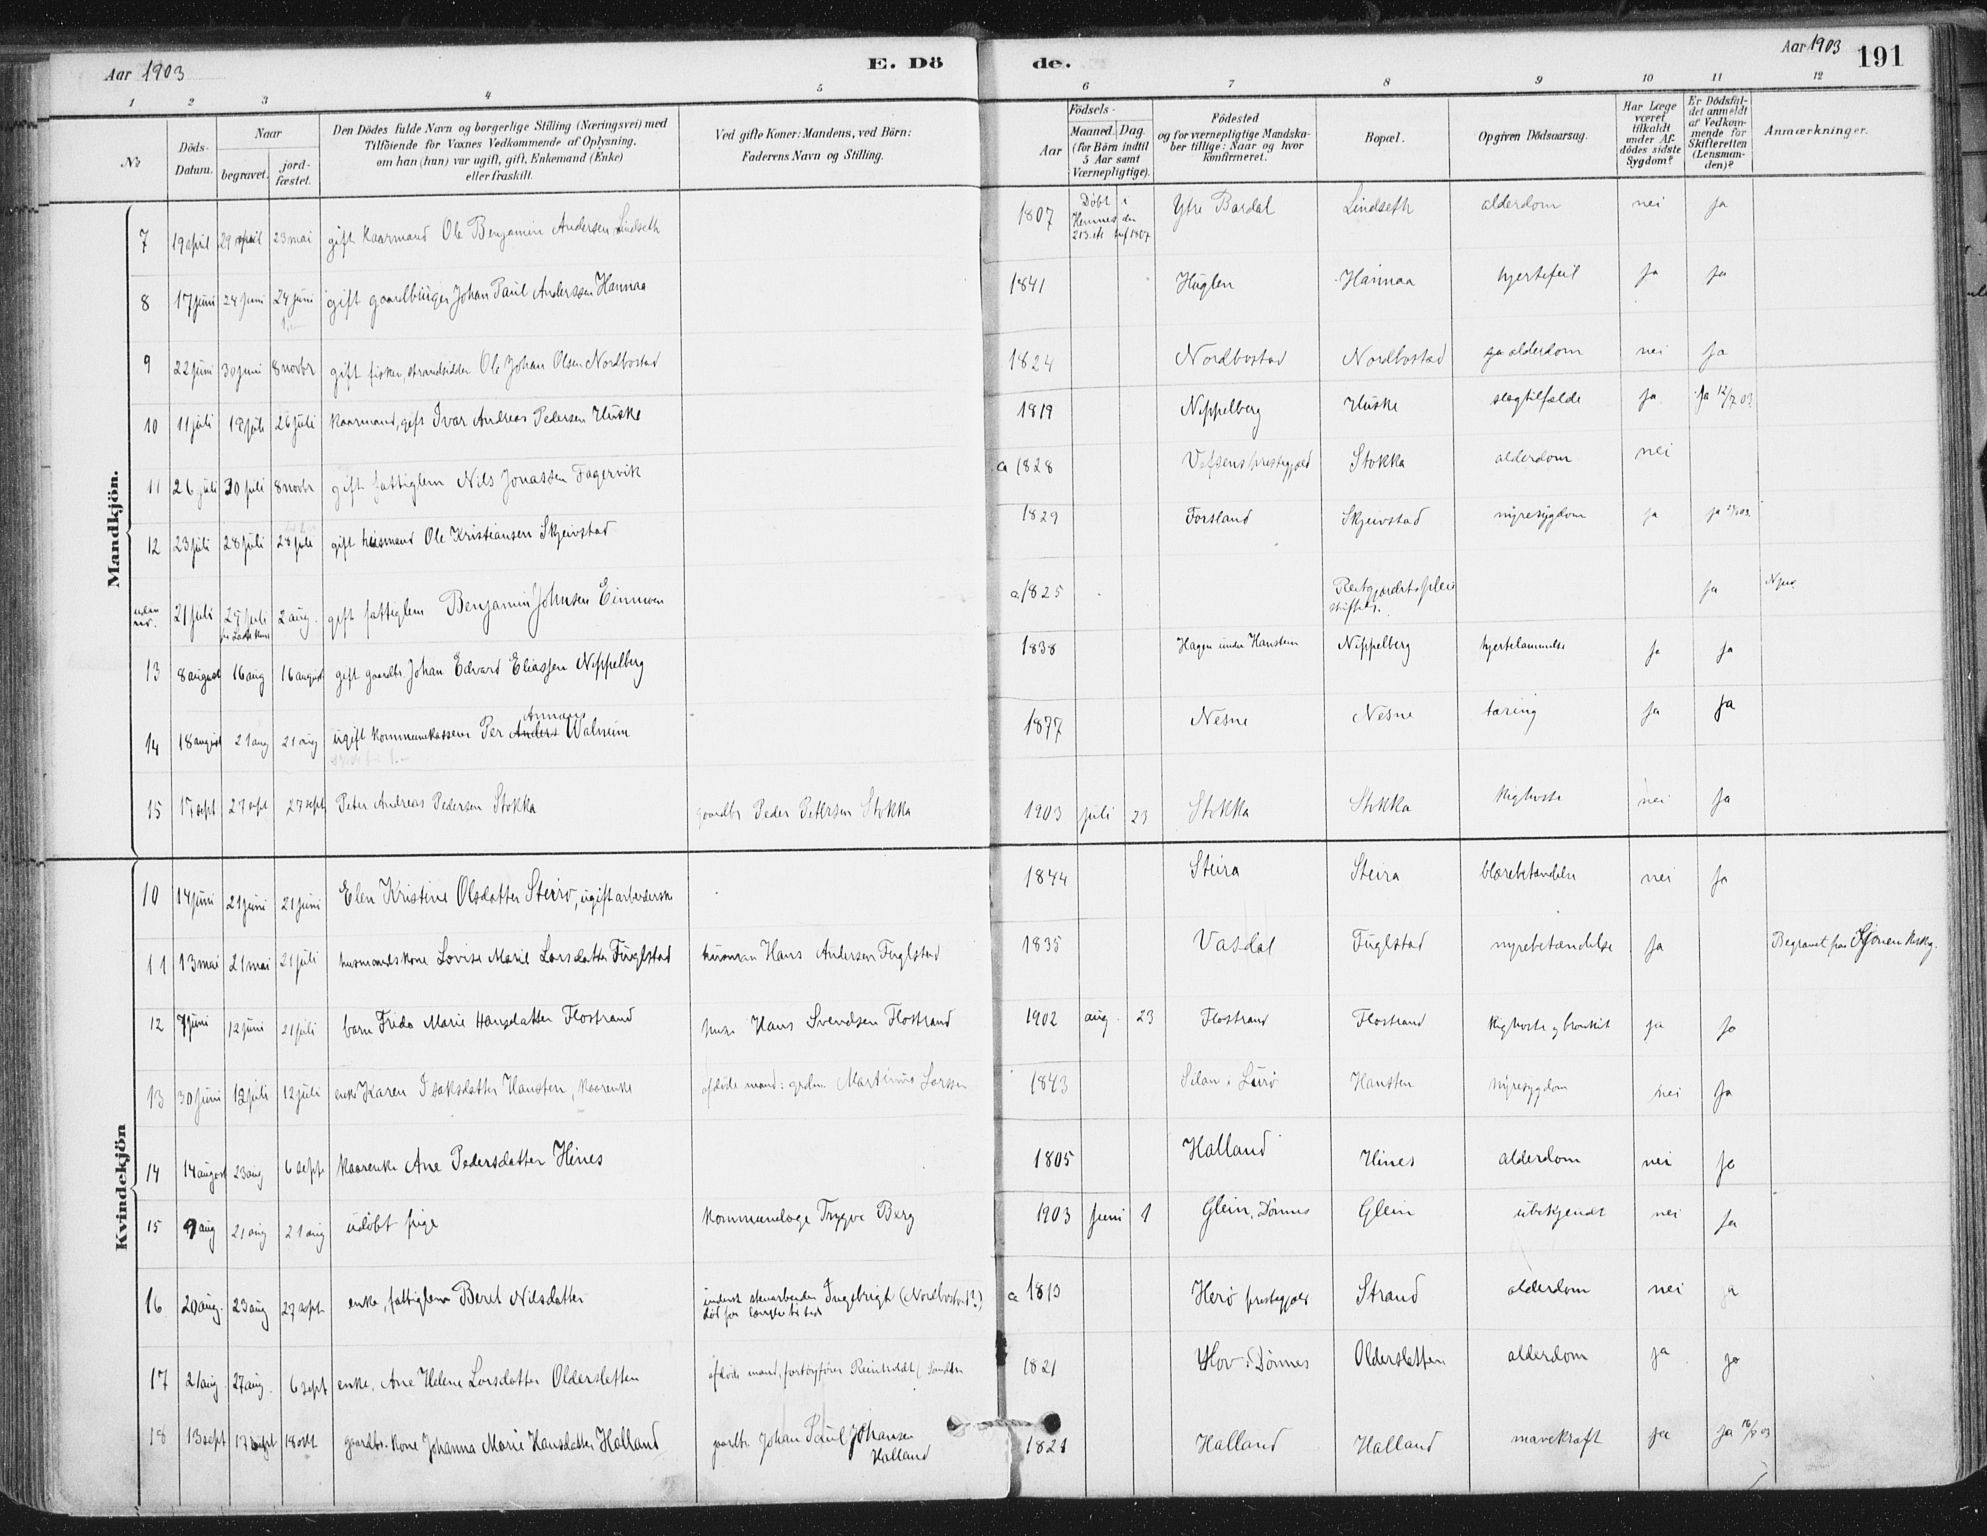 Aar 1903 E. Dö
de. Aar 1903 191
1 2 3 4 5 6 7 8 9 10 11 12
No Döds-Datum. Naar begravet. jordfæstet. Den Dödes fulde Navn og borgerlige Stilling (Næringsvei) med Tilföiende for Voxnes Vedkommende af Oplysning, om han (hun) var ugift, gift, Enkemand (Enke) eller fraskilt. Ved gifte Koner: Mandens, ved Börn: Faderens Navn og Stilling. Födsels- Aar Maaned. Dag. (for Börn indtil 5 Aar samt Værnepligtige). Födested og for værnepligtige Mandskaber tillige: Naar og hvor konfirmeret. Bopæl. Opgiven Dödsaarsag. Har Læge været tilkaldt under Afdödes sidste Sygdom? Er Dödsfaldet anmeldt af Vedkommende for Skifteretten (Lensmanden)? Anmærkninger.
Mandkjön.
7 19 april 29 april 23 mai gift kaarmand Ole Benjamin Andersen Lindseth 1807 Døbt i Hemnes den Ytre Bardal Lindseth alderdom nei ja
8 17 juni 24 juni 24 juni gift gaardbruger Johan Paul Anderssen Hannaa 1841 Huglen Hannaa hjertefeil ja ja
9 22 juni 30 juni 8 novbr gift fisker, strandsidder Ole Johan Olsen Nordbostad 1824 Nordbostad Nordbostad alderdom nei ja
10 11 juli 19 juli 26 juli kaarmand, gift Ivar Andreas Pedersen Huske 1819 Nippelberg Huske slagtilfælde ja ja 12/7 03
11 26 juli 30 juli 8 novbr gift fattiglem Nils Jonassen Fagervik ca 1828 Vefsens prestegjeld Stokka alderdom nei
12 23 juli 28 juli 28 juli gift husmand Ole Kristiansen Skjeivstad 1829 Forsland Skjeivstad nyresygdom ja ja
uden no. 21 juli 25 juli 2 aug. gift fattiglem Benjamin Johnsen Einmoen ca 1825 ja
13 8 august 16 aug 16 august gift gaardbr. Johan Edvard Eliassen Nippelberg 1838 Hagen under Hansteen Nippelberg hjertelammelse ja ja
14 18 august 21 aug 21 aug ugift kommunekasserer Per Anders Walnum 1877 Nesne Nesne tæring ja ja
15 17 sept 27 sept 27 sept Peter Andreas Pedersen Stokka gaardbr Peder Petersen Stokka 1903 juli 23 Stokka Stokka kighoste nei ja
Kvindekjön
10 14 juni 21 juni 21 juni Elen Kristine Olsdatter Steiro, ugift arbeiderske 1844 Steira Steira blærebetændelse nei ja
11 13 mai 21 mai 21 juli husmandskone Lovise Marie Larsdatter Fuglstad husman Hans Andersen Fuglstad 1835 Vasdal Fuglstad nyrebetændelse ja Begravet paa Sjonen
12 7 juni 12 juni 21 juli barn Frida Marie Hansdatter Flostrand Hans Svendsen Flostrand 1902 aug. 23 Flostrand Flostrand kighoste og bronkit ja ja
13 30 juni 12 juli 12 juli enke Karen Isaksdatter Hansten, kaarenke afdøde mand: Martinus Larssen 1843 Silan i Lurø Hansten nyresygdom nei ja
14 14 august 23 aug 6 septr kaarenke Ane Pedersdatter Hines 1805 Halland Hines alderdom nei ja
15 9 aug 21 aug 21 aug udøbt pige kommunelæge Trygve Berg 1903 juni 1 Glein, Dønnes Glein ubekjendt nei ja
16 20 aug. 23 aug 27 sept. enke, fattiglem Beret Nilsdatter inderst stenarbeider Ingebrigt (Nordbostad?) død for længere tid siden ca 1813 Herø prestegjeld Strand alderdom nei ja
17 21 aug 27 aug. 6 sept enke, Ane Helene Larsdatter Oldersletten afdøde mand, Reinholdt 1821 Hov i Dønnes Oldersletten alderdom ja ja
18 13 sept 17 sept 18 okt gaardbr. kone Johanna Marie Hansdatter Halland gaardbr. Johan Paul Johansen Halland 1821 Halland Halland mavekræft ja ja